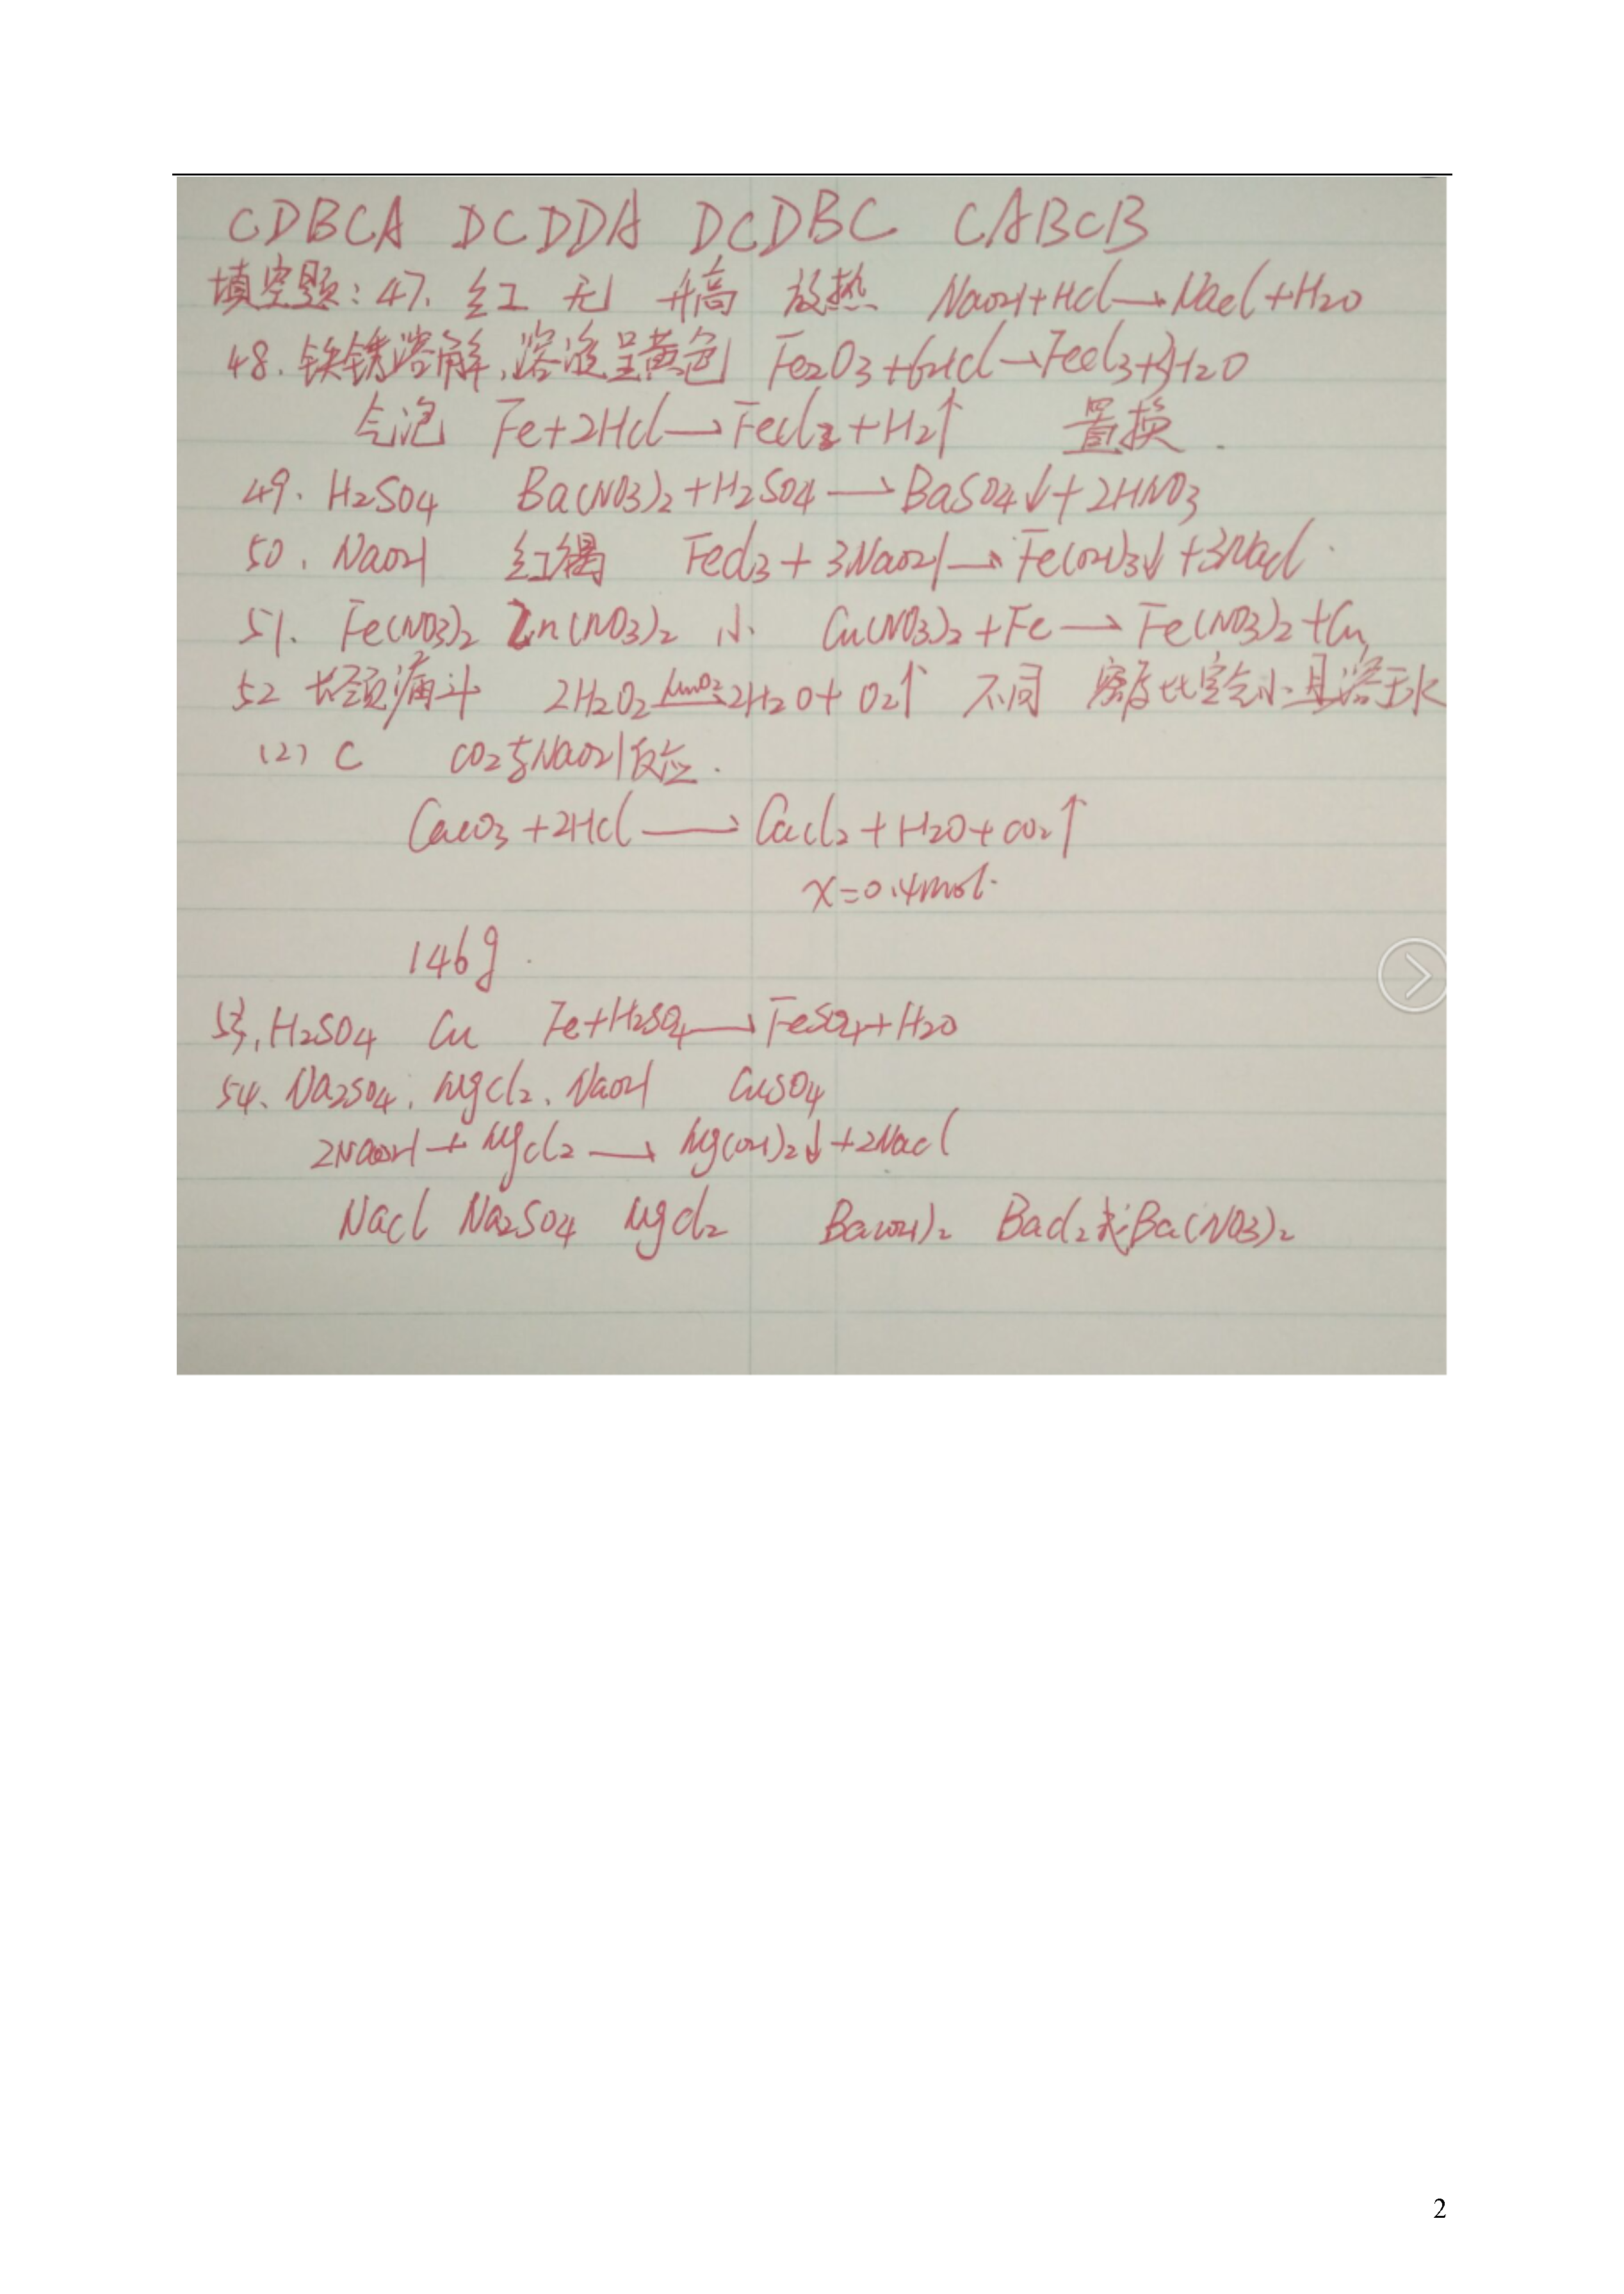 CDBCA DCDDA DCDBC CABCB
填空题:47. 红 无 升高 放热 NaOH+HCl→NaCl+H2O
48.铁锈溶解,溶液呈黄色 Fe2O3+6HCl→FeCl3+3H2O
气泡 Fe+2HCl→FeCl2+H2↑ 置换.
49. H2SO4 Ba(NO3)2+H2SO4→BaSO4↓+2HNO3
50. NaOH 红褐 FeCl3+3NaOH→Fe(OH)3↓+3NaCl.
51. Fe(NO3)2 Zn(NO3)2 小 Cu(NO3)2+Fe→Fe(NO3)2+Cu
52 长颈漏斗 2H2O2 MnO2 2H2O+O2↑ 不同 密度比空气小且溶于水
(2) C CO2与NaOH反应.
CaCO3+2HCl→CaCl2+H2O+CO2↑
x=0.4mol.
146g.
53. H2SO4 Cu Fe+H2SO4→FeSO4+H2O
54、Na2SO4、MgCl2、NaOH CuSO4
2NaOH+MgCl2→Mg(OH)2↓+2NaCl
NaCl Na2SO4 MgCl2 Ba(OH)2 BaCl2或Ba(NO3)2
2